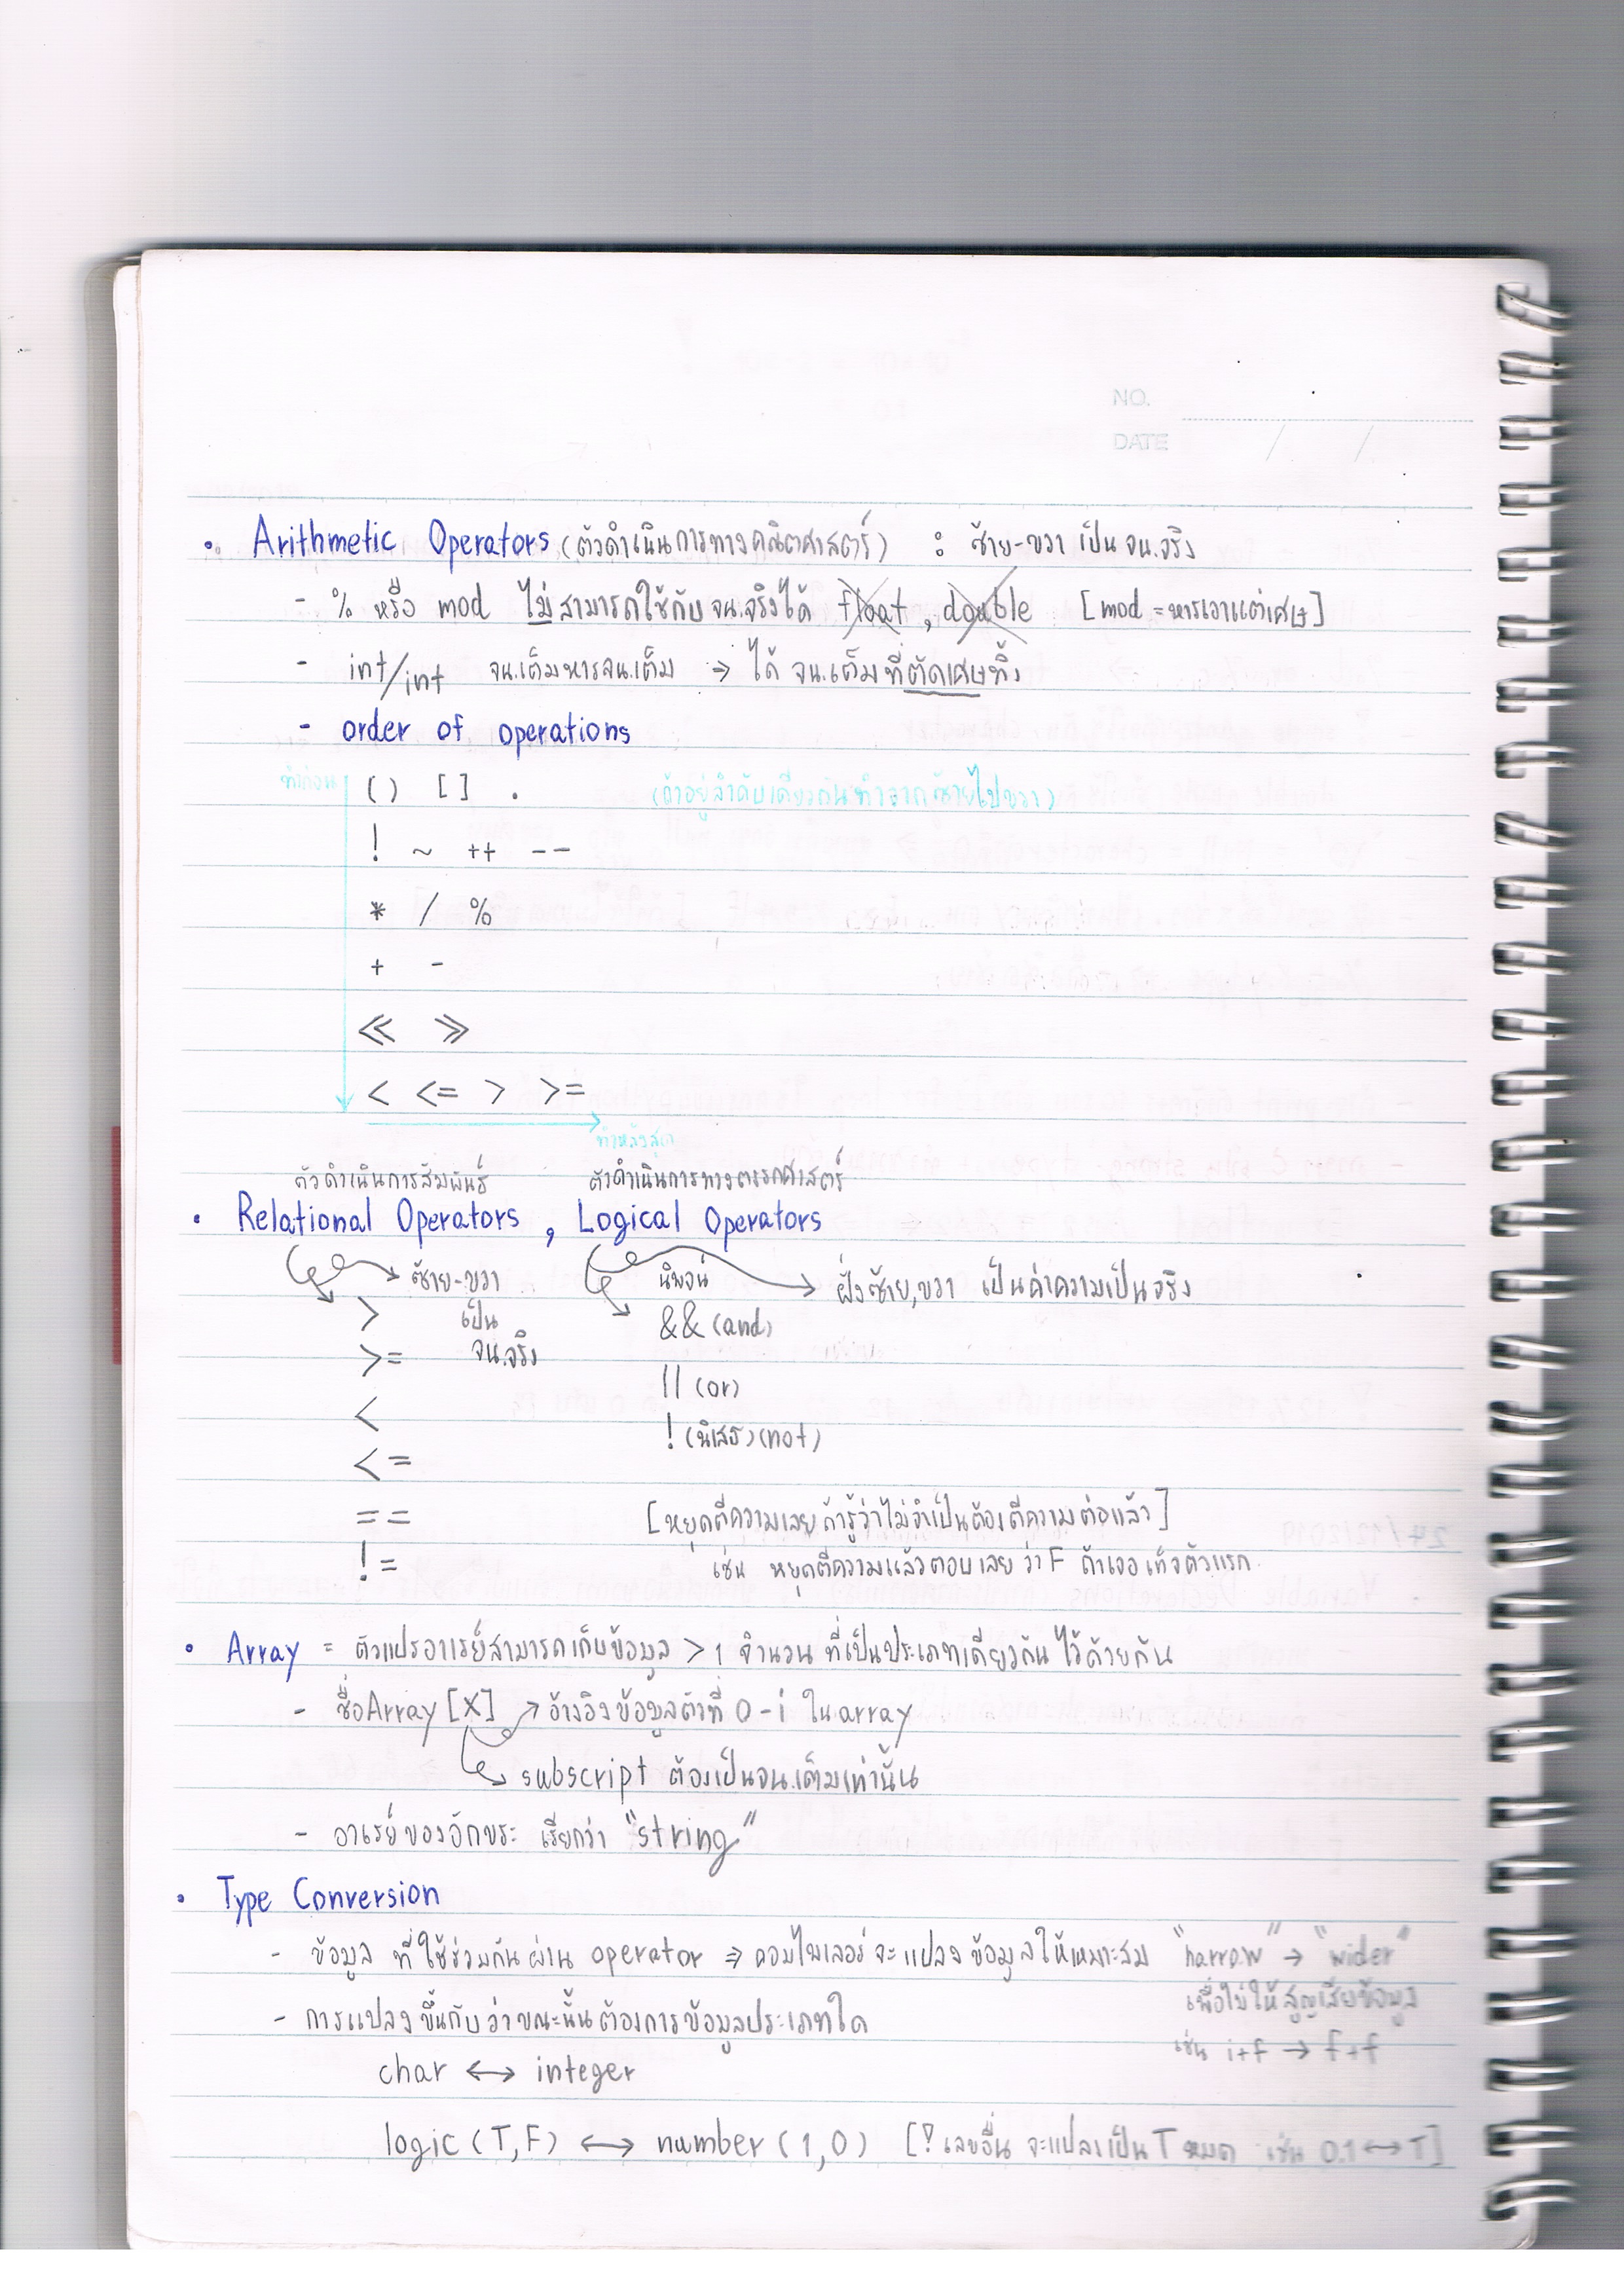 NO.
DATE / /
• Arithmetic Operators (ตัวดำเนินการทางคณิตศาสตร์) : ซ้าย-ขวา เป็น จน.จริง
- % หรือ mod ไม่สามารถใช้กับ จน.จริงได้ float, double [mod = หารเอาแต่เศษ]
- int/int จน.เต็มหารจน.เต็ม ⇒ ได้ จน.เต็มที่ตัดเศษทิ้ง
- order of operations
ทำก่อน () [] . (ถ้าอยู่ลำดับเดียวกันทำจากซ้ายไปขวา)
! ~ ++ --
* / %
+ -
<< >>
< <= > >=
ทำหลังสุด
ตัวดำเนินการสัมพันธ์ ตัวดำเนินการทางตรรกศาสตร์
• Relational Operators , Logical Operators
→ ซ้าย-ขวา นิพจน์ → ฝั่งซ้าย,ขวา เป็นค่าความเป็นจริง
> เป็น && (and)
>= จน.จริง
|| (or)
<
! (นิเสธ) (not)
<=
== [หยุดตีความเลยถ้ารู้ว่าไม่จำเป็นต้องตีความต่อแล้ว]
!= เช่น หยุดตีความแล้วตอบเลย ว่า F ถ้าเจอเท็จตัวแรก
• Array = ตัวแปรอาเรย์สามารถเก็บข้อมูล > 1 จำนวน ที่เป็นประเภทเดียวกัน ไว้ด้วยกัน
- ชื่อArray [X] → อ้างอิงข้อมูลตัวที่ 0-i ใน array
→ subscript ต้องเป็นจน.เต็มเท่านั้น
- อาเรย์ของอักขระ เรียกว่า "string"
• Type Conversion
- ข้อมูล ที่ใช้ร่วมกันผ่าน operator ⇒ คอมไพเลอร์จะแปลงข้อมูลให้เหมาะสม "narrow" → "wider"
เพื่อไม่ให้สูญเสียข้อมูล
- การแปลงขึ้นกับว่าขณะนั้นต้องการข้อมูลประเภทใด
เช่น i+f → f+f
char ↔ integer
logic (T,F) ↔ number (1,0) [? เลขอื่น จะแปลงเป็น T หมด เช่น 0.1 ↔ T]